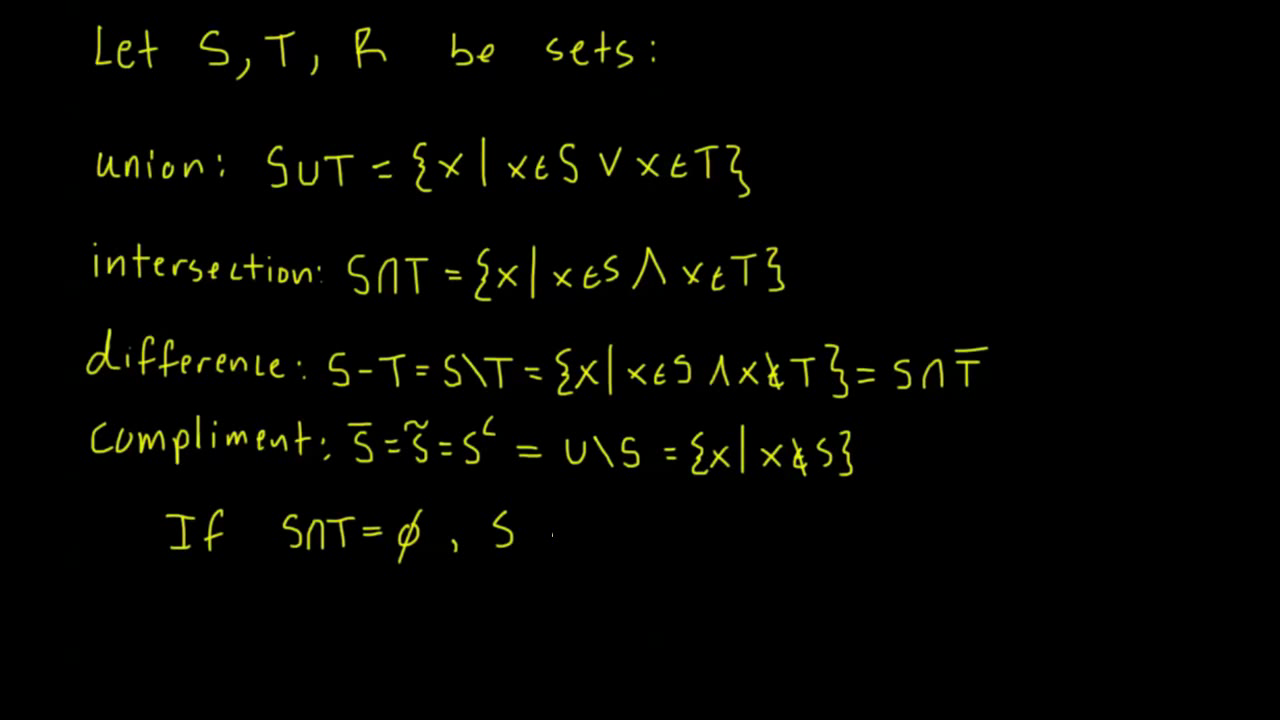 Let S, T, R be sets:
union: S∪T = {x | x∈S ∨ x∈T}
intersection: S∩T = {x | x∈S ∧ x∈T}
difference: S-T = S\T = {x | x∈S ∧ x∉T} = S∩T̅
Compliment: S̅ = S̃ = Sᶜ = U\S = {x | x∉S}
If S∩T = ∅, S